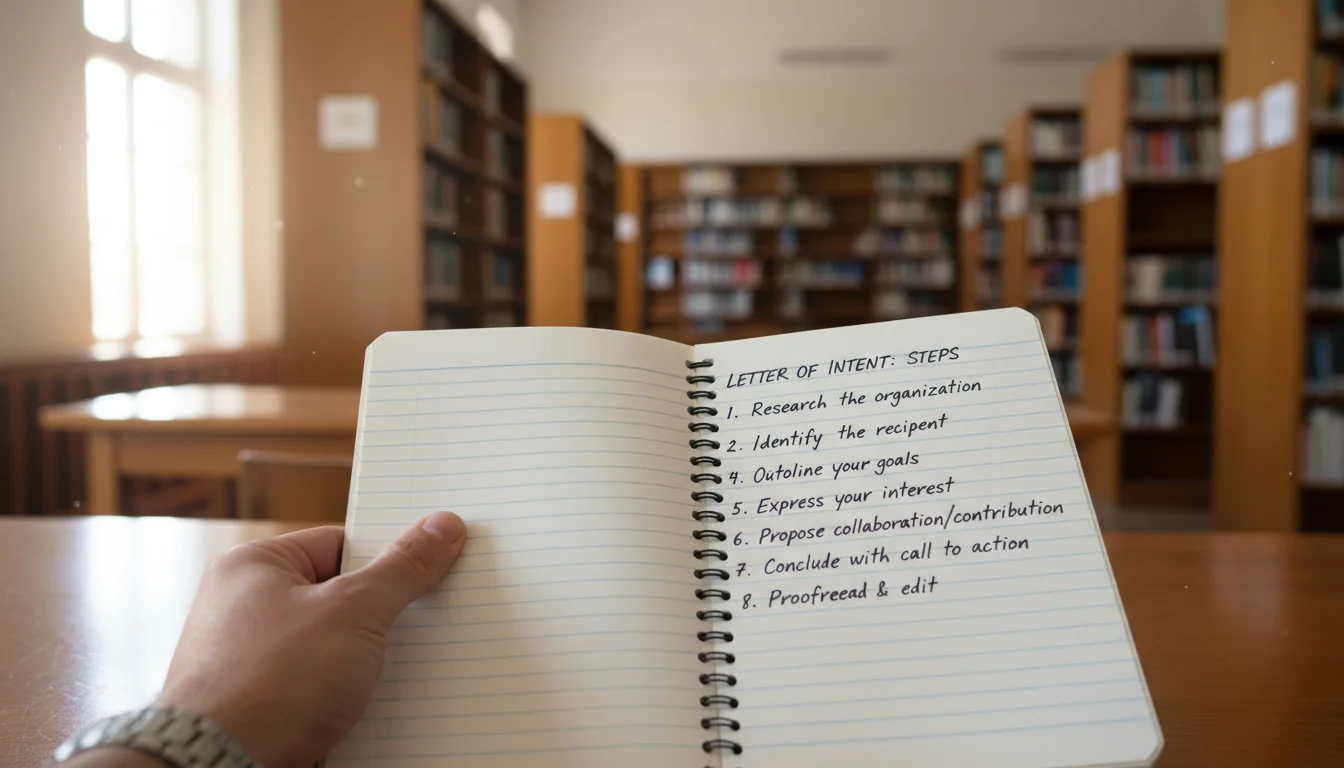 LETTER OF INTENT: STEPS
1. Research the organization
2. Identify the recipent
4. Outoline your goals
5. Express your interest
6. Propose collaboration/contribution
7. Conclude with call to action
8. Proofreead & edit